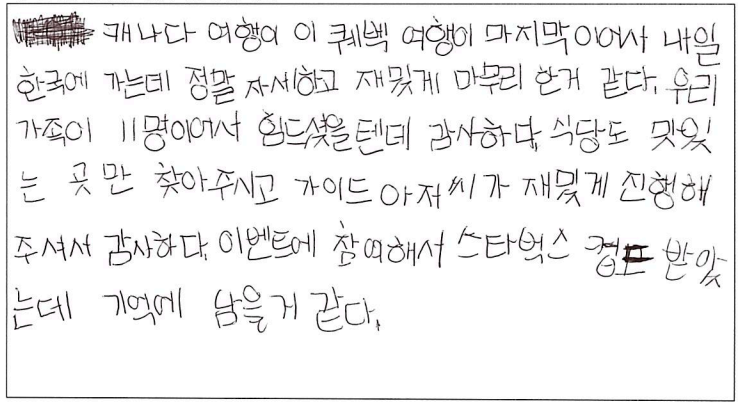 캐나다 여행이 이 퀘벡 여행이 마지막이어서 내일
한국에 가는데 정말 자세하고 재밌게 마무리 한거 같다. 우리
가족이 11명이어서 힘드셧을텐데 감사하다. 식당도 맛잇
는 곳만 찾아주시고 가이드 아저씨가 재밌게 진행해
주셔서 감사하다. 이벤트에 참여해서 스타벅스 컵도 받았
는데 기억에 남을거 같다.